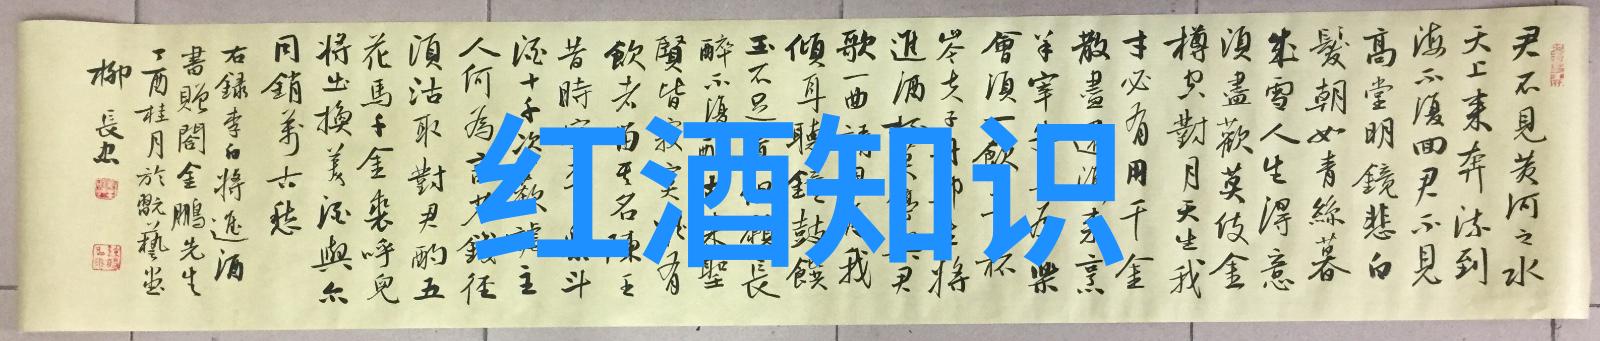 君不見黄河之水
天上来奔流到
海不復回君不見
高堂明鏡悲白
髮朝如青絲暮
成雪人生得意
須盡歡莫使金
樽空對月天生我
才必有用千金
散盡還復来烹
羊宰牛且為樂
會須一飲杯
岑夫子將
進酒杯莫君
歌一曲請我
傾耳聽鐘鼓饌
玉不足貴願長
醉不復醒来聖
賢皆寂寞惟有
飲者留其名陳王
昔時宴平樂斗
酒十千恣歡謔主
人何為言少錢徑
須沽取對君酌五
花馬千金裘呼兒
將出換美酒與尔
同銷萬古愁
右録李白將進酒
書贈閣金鵬先生
丁酉桂月於翫藝堂
柳長忠
红酒知识